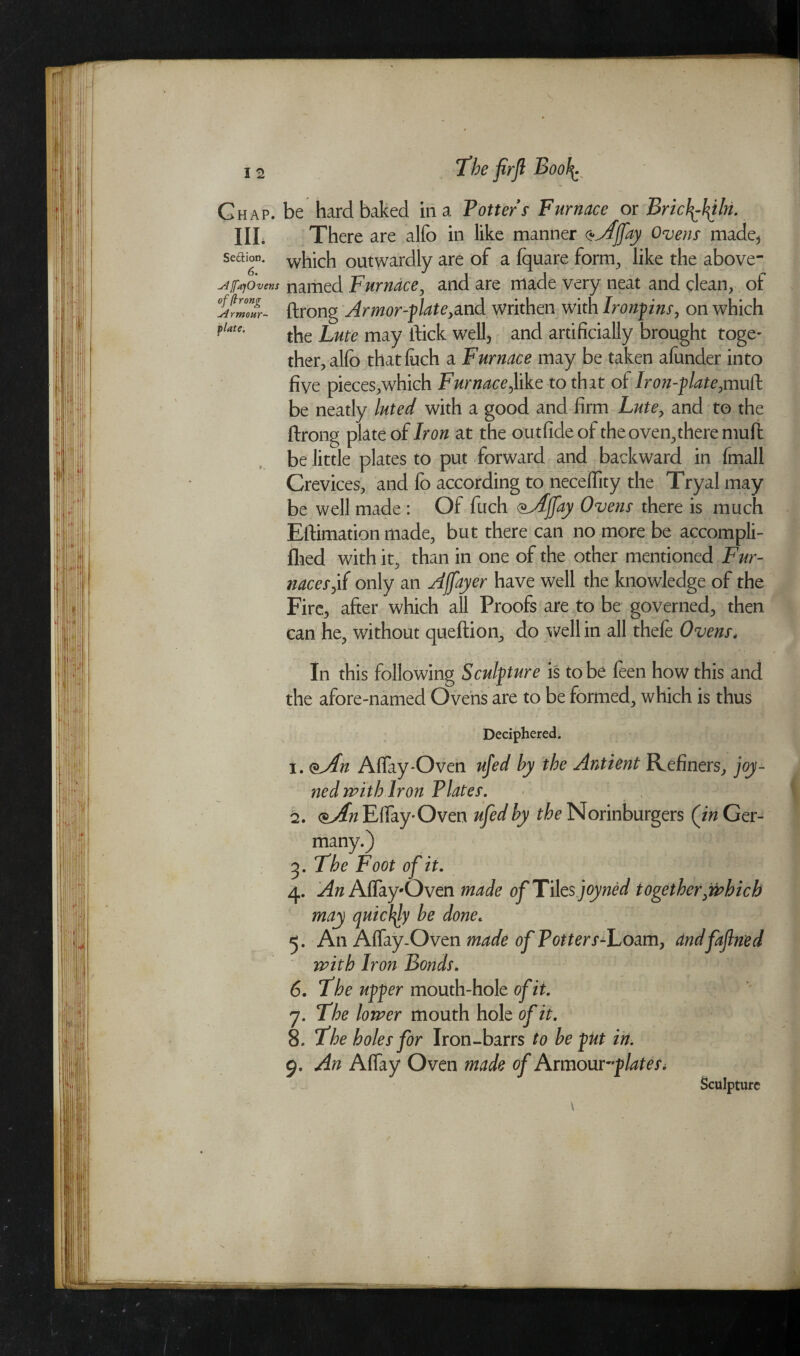 12 The firſt Book.
Chap. be hard baked in a Potter's Furnace or Brick-kiln.
III. There are alſo in like manner Aſſay Ovens made,
Section. 6. which outwardly are of a ſquare form, like the above-
Aſſay Ovens named Furnace, and are made very neat and clean, of
of ſtrong Armour- ſtrong Armor-plate, and writhen with Iron pins, on which
plate. the Lute may ſtick well, and artificially brought toge-
ther, alſo that ſuch a Furnace may be taken aſunder into
five pieces, which Furnace, like to that of Iron-plate, muſt
be neatly luted with a good and firm Lute, and to the
ſtrong plate of Iron at the outſide of the oven, there muſt
be little plates to put forward and backward in ſmall
Crevices, and ſo according to neceſſity the Tryal may
be well made : Of ſuch Aſſay Ovens there is much
Eſtimation made, but there can no more be accompli-
ſhed with it, than in one of the other mentioned Fur-
naces, if only an Aſſayer have well the knowledge of the
Fire, after which all Proofs are to be governed, then
can he, without queſtion, do well in all theſe Ovens.
In this following Sculpture is to be ſeen how this and
the afore-named Ovens are to be formed, which is thus
Deciphered.
1. An Aſſay-Oven uſed by the Antient Refiners, joy-
ned with Iron Plates.
2. An Eſſay-Oven uſed by the Norinburgers (in Ger-
many.)
3. The Foot of it.
4. An Aſſay-Oven made of Tiles joyned together, which
may quickly be done.
5. An Aſſay-Oven made of Potters-Loam, and faſtned
with Iron Bonds.
6. The upper mouth-hole of it.
7. The lower mouth hole of it.
8. The holes for Iron-barrs to be put in.
9. An Aſſay Oven made of Armour-plates.
Sculpture